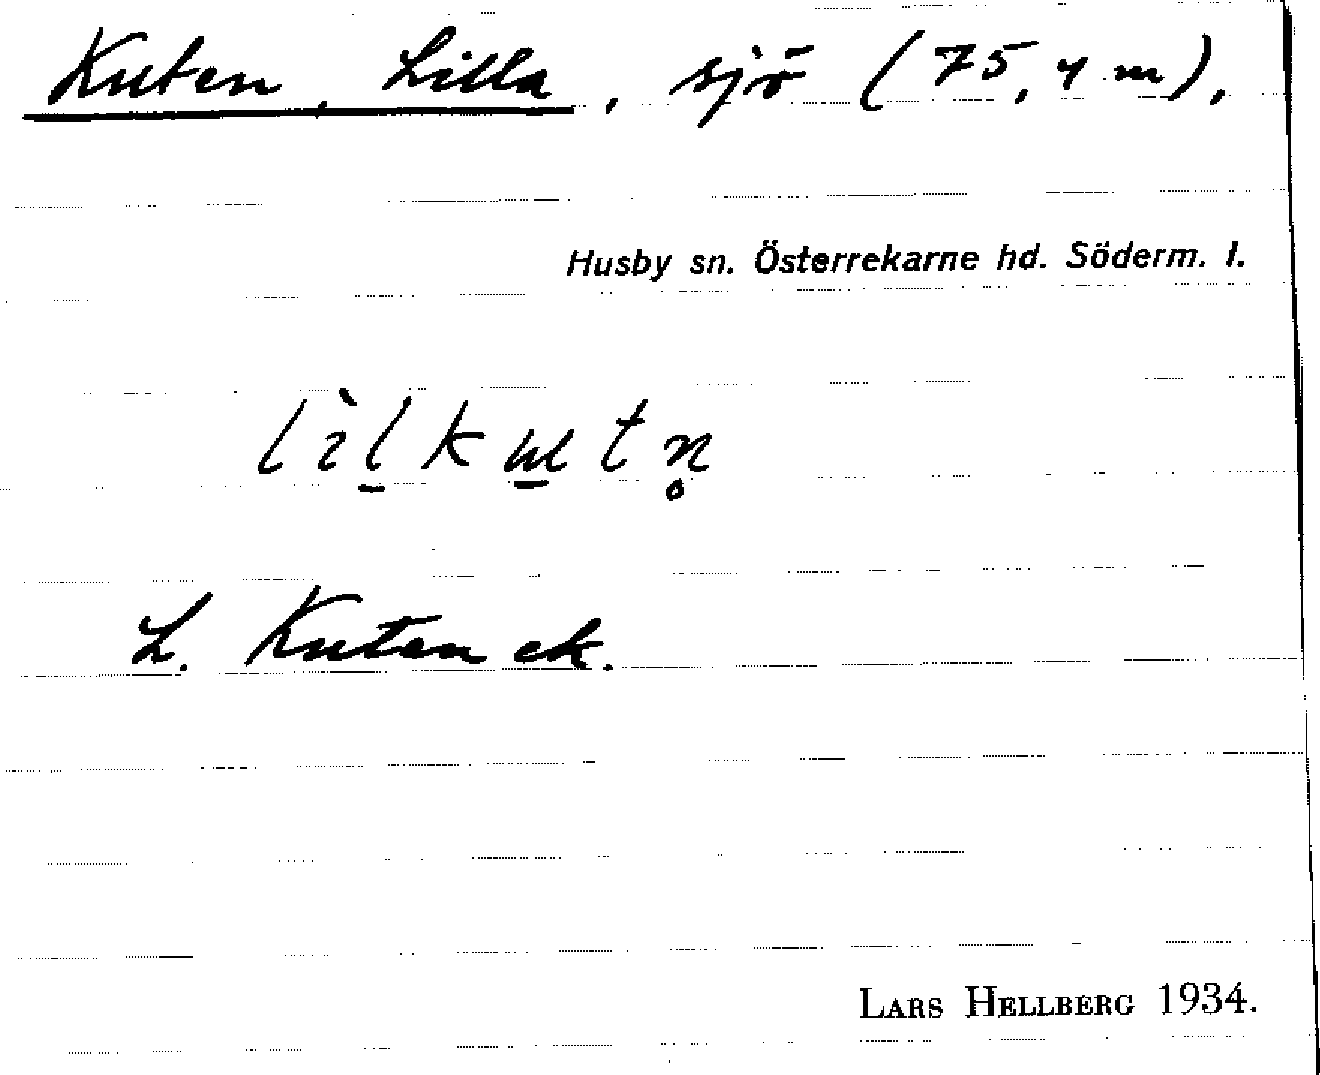 Kuten, Lilla, sjö (75,4 m),
Husby sn. Österrekarne hd. Söderm. l.
lìl̠kɯ̠tn̥
L. Kuten ek.
LARS HELLBERG 1934.